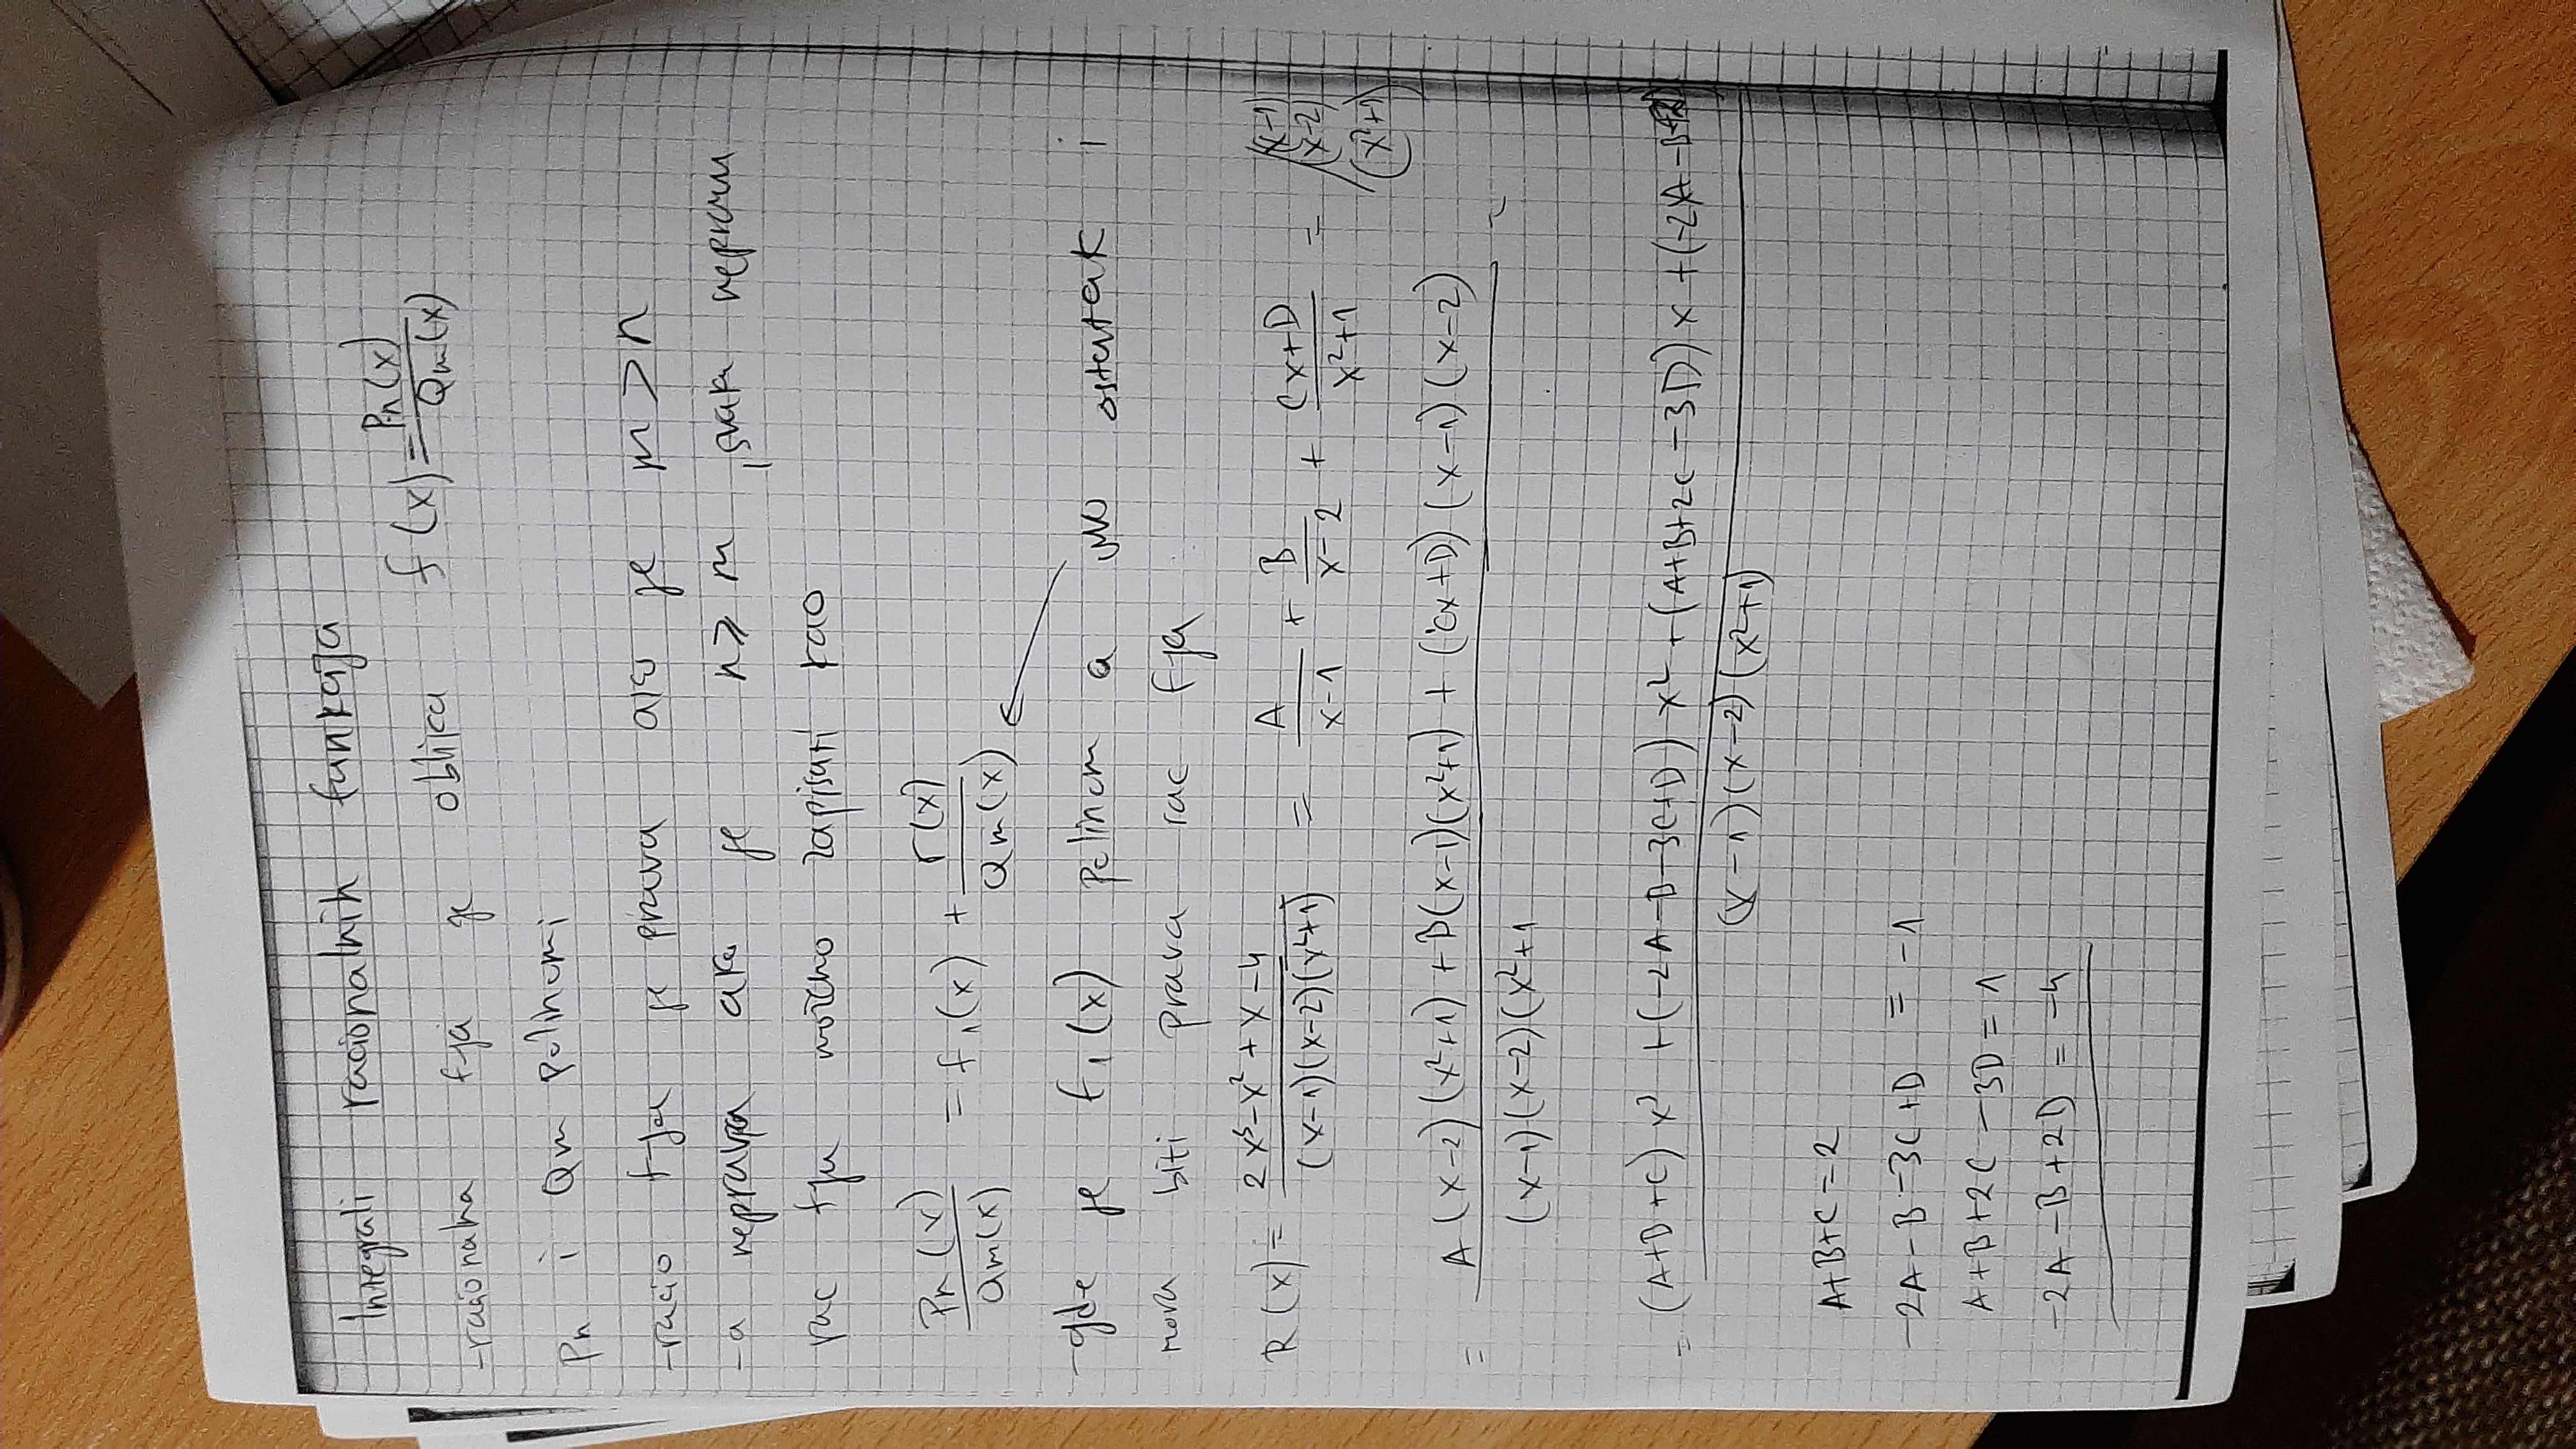 Integrali racionalnih funkcija
-racionalna fja je oblika f(x)=Pn(x)/Qm(x)
Pn i Qm polinomi
-racio fja je prava ako je m>n
-a neprava ako je n≥m, svaku nepravu
rac fju možemo zapisati kao
Pn(x)/Qm(x) = f₁(x) + r(x)/Qm(x)
-gde je f₁(x) polinom a ostatak i
mora biti prava rac fja
R(x)= (2x³-x²+x-4)/((x-1)(x-2)(x²+1)) = A/(x-1) + B/(x-2) + (Cx+D)/(x²+1) = /(x-1)(x-2)(x²+1)
= (A(x-2)(x²+1)+B(x-1)(x²+1)+(Cx+D)(x-1)(x-2))/((x-1)(x-2)(x²+1 =
= ((A+B+C)x³+(-2A-B-3C+D)x²+(A+B+2C-3D)x+(-2A-B+2D))/((x-1)(x-2)(x²+1))
A+B+C=2
-2A-B-3C+D = -1
A+B+2C-3D=1
-2A-B+2D=-4